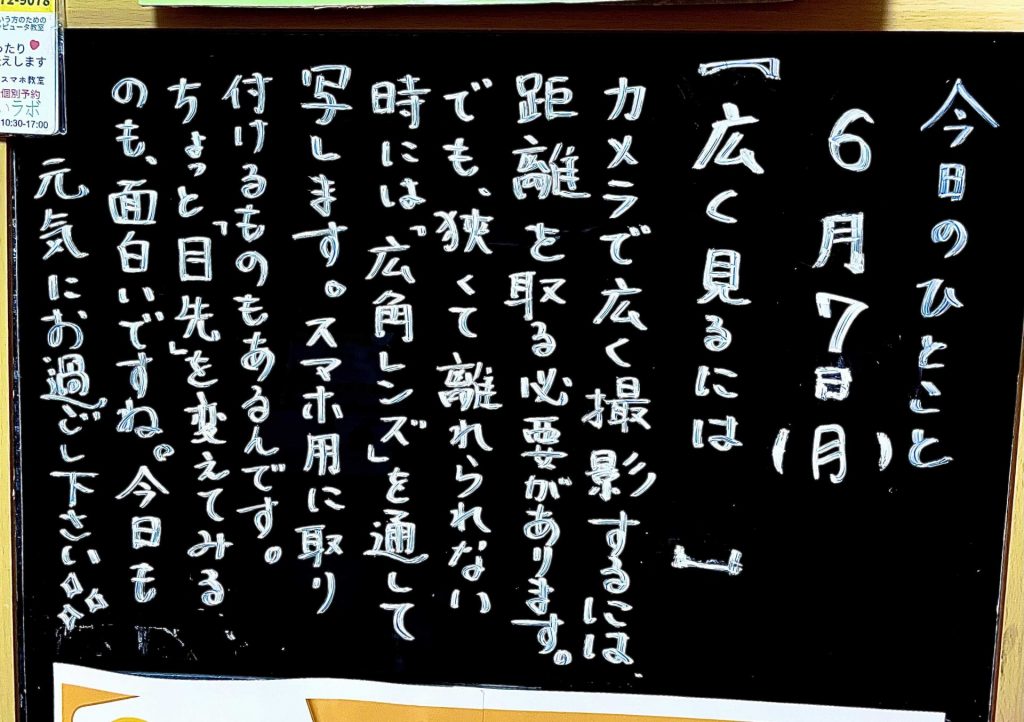 今日のひとこと
6月7日(月)
【広く見るには】
カメラで広く撮影するには
距離を取る必要があります。
でも、狭くて離れられない
時には「広角レンズ」を通して
写します。スマホ用に取り
付けるものもあるんです。
ちょっと「目先」を変えてみる
のも、面白いですね。今日も
元気にお過ごし下さい
72-9078
いう方のための
ピュータ教室
ったり
えします
スマホ教室
個別予約
いラボ
10:30-17:00